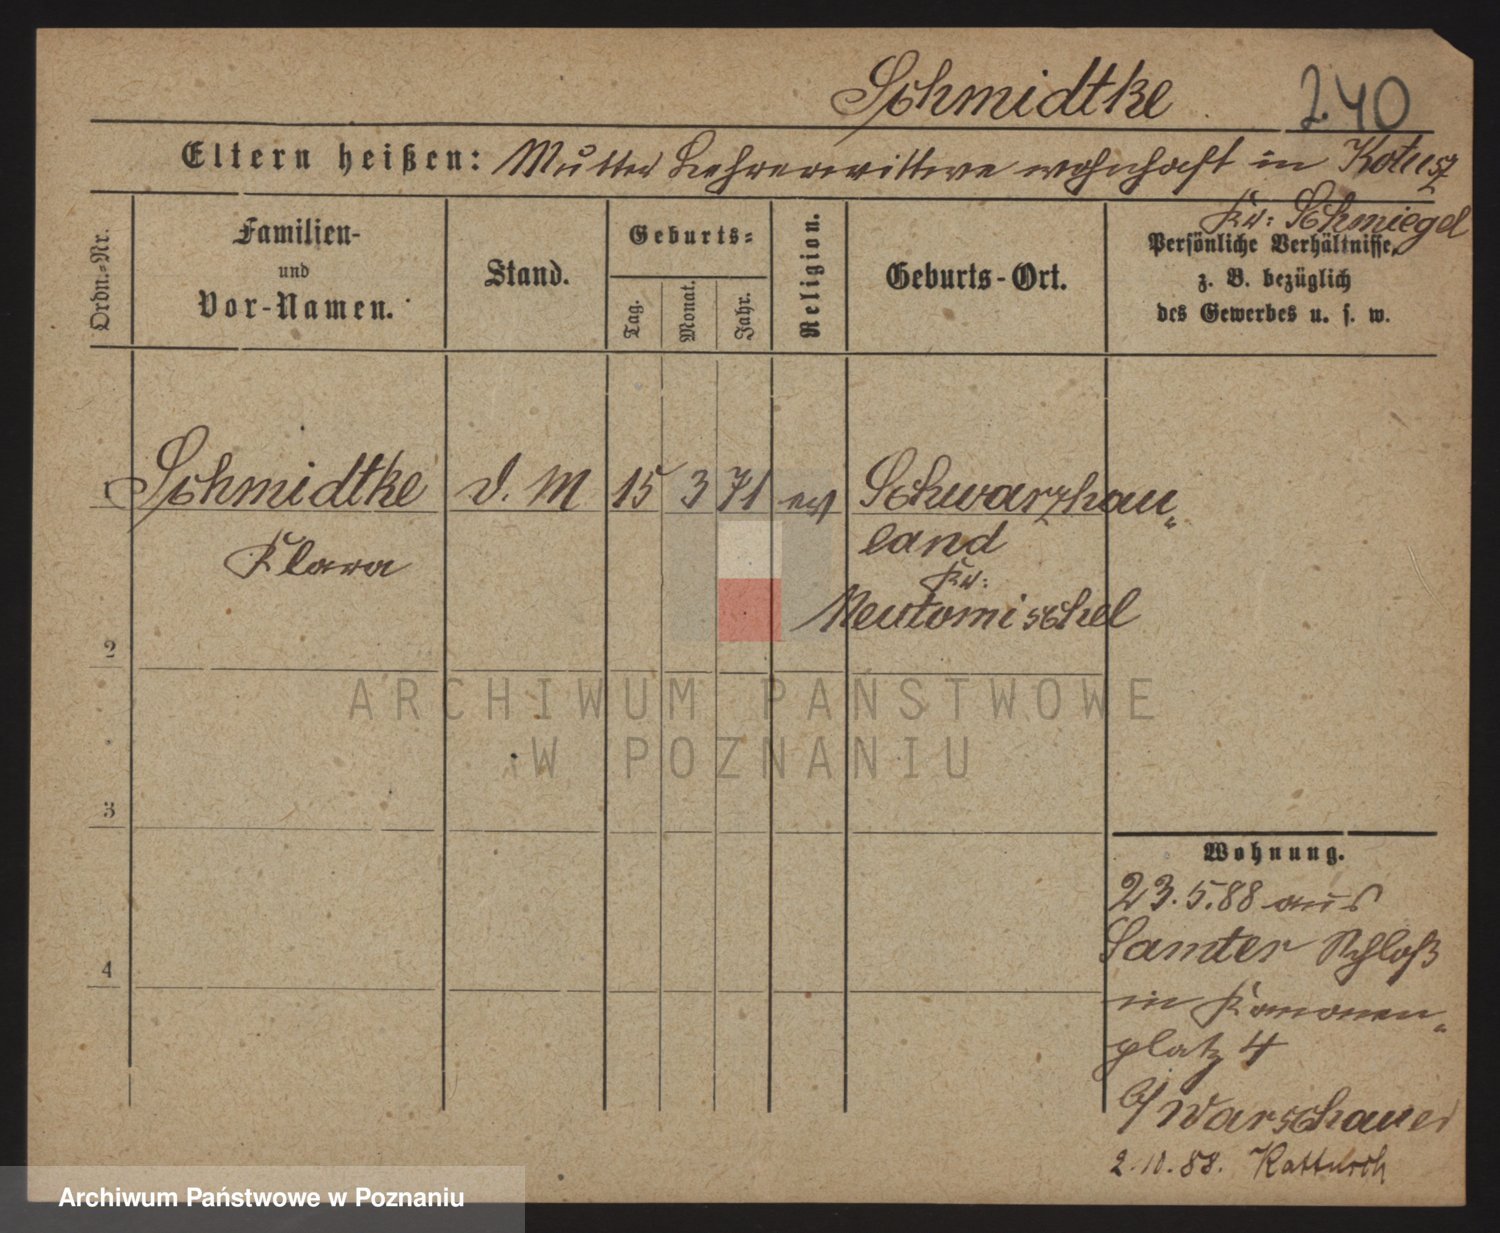 Schmidtke 240
Eltern heißen: Mutter Lehrerwittwe wohnhaft in Kotusz
Kr: Schmiegel
Ordn.-Nr.
Familien-
und
Vor-Namen.
Stand.
Geburts-
Tag.
Monat.
Jahr.
Religion.
Geburts-Ort.
Persönliche Verhältnisse,
z. B. bezüglich
des Gewerbes u. s. w.
1 Schmidtke d. M 15 3 71 ev Schwarzhau„
Klara land
Kr:
Neutomischel
2
ARCHIWUM PAŃSTWOWE
W POZNANIU
3
Wohnung.
23.5.88 aus
Samter Schloß
4
in Kanonen„
platz 4
b/ Warschauer
2.10.88.
Archiwum Państwowe w Poznaniu